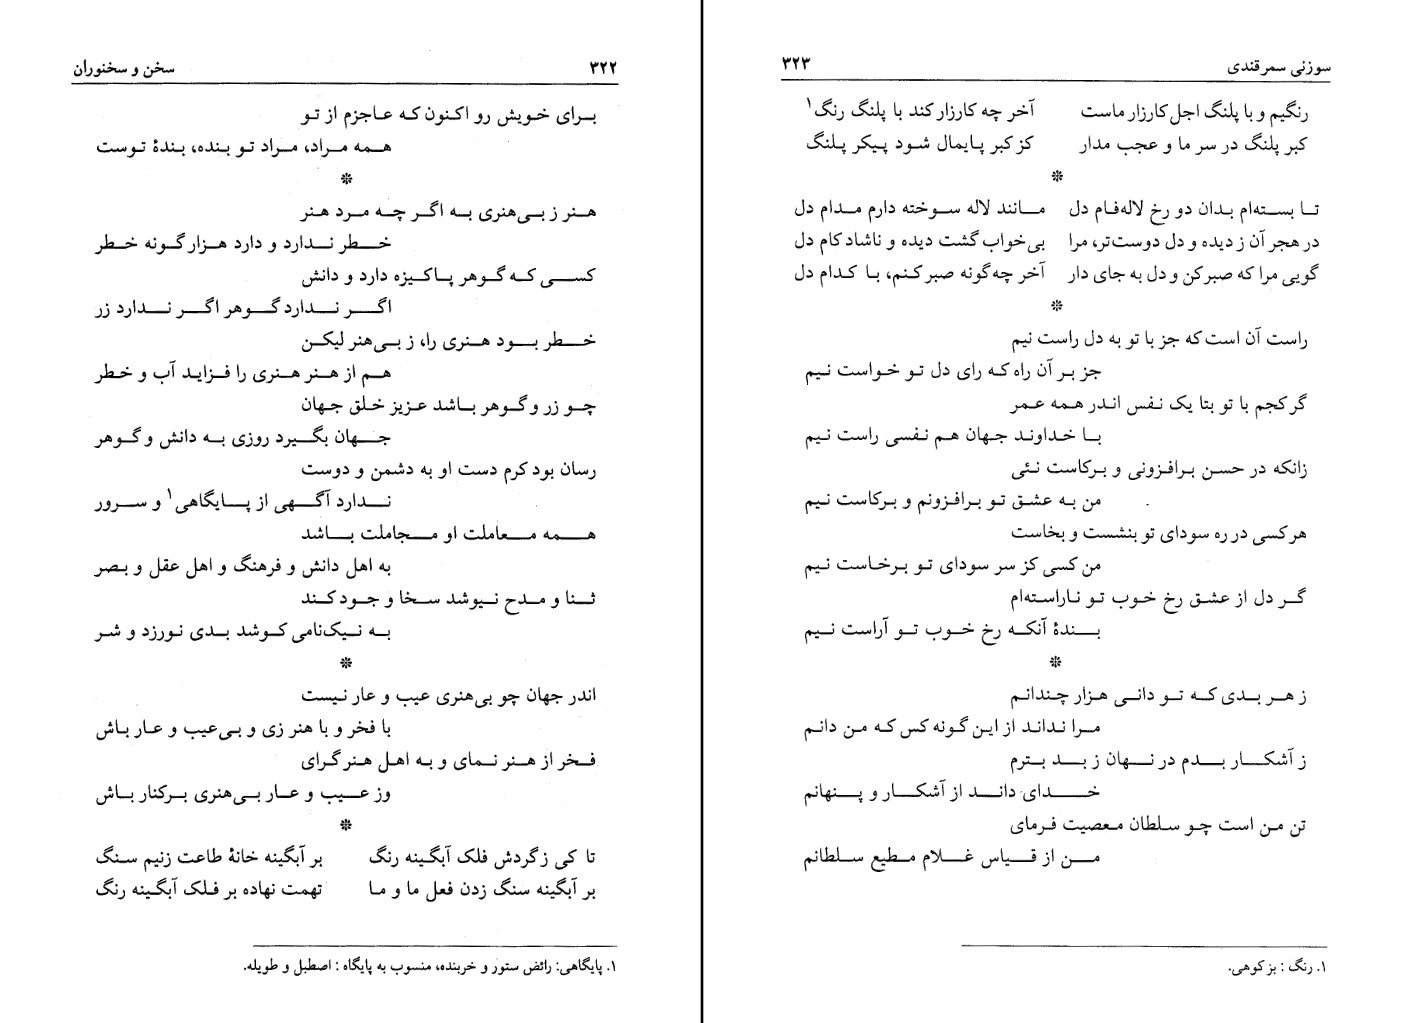 سخن و سخنوران ۳۲۲
بـرای خـویش رو اکـنون کـه عـاجزم از تو
هـمه مـراد، مـراد تو بـنده، بـندهٔ توست
*
هـنر ز بـی‌هنری بـه اگـر چـه مـرد هنر
خـطر نـدارد و دارد هـزار گـونه خـطر
کسـی کـه گـوهر پـاکیزه دارد و دانش
اگـر نـدارد گـوهر اگـر نـدارد زر
خـطر بـود هـنری را، ز بـی‌هنر لیکـن
هـم از هـنر هـنری را فـزاید آب و خـطر
چـو زر و گـوهر بـاشد عـزیز خـلق جـهان
جـهان بگـیرد روزی بـه دانش و گـوهر
رسان بود کرم دست او به دشمن و دوست
نـدارد آگـهی از پـایگاهی۱ و سـرور
هـمه مـعاملت او مـجاملت بـاشد
به اهل دانش و فرهنگ و اهل عقل و بـصر
ثـنا و مـدح نـیوشد سـخا و جـود کـند
بـه نـیک‌نامی کـوشد بـدی نـورزد و شـر
*
اندر جهان چو بی‌هنری عیب و عار نـیست
با فخر و با هنر زی و بـی‌عیب و عـار بـاش
فـخر از هـنر نـمای و بـه اهـل هـنر گـرای
وز عـیب و عـار بـی‌هنری بـرکنار بـاش
*
تا کی ز گردش فلک آبگـینه رنگ بر آبگینه خانهٔ طاعت زنیم سـنگ
بر آبگینه سنگ زدن فعل ما و مـا تهمت نهاده بر فـلک آبگـینه رنگ
۱. پایگاهی: رائض ستور و خربنده، منسوب به پایگاه : اصطبل و طویله.
سوزنی سمرقندی ۳۲۳
رنگیم و با پلنگ اجل کارزار ماست آخر چه کارزار کند با پلنگ رنگ۱
کبر پلنگ در سر ما و عجب مدار کز کبر پـایمال شـود پـیکر پـلنگ
*
تـا بسـته‌ام بدان دو رخ لاله‌فـام دل مـانند لاله سـوخته دارم مـدام دل
در هجر آن ز دیده و دل دوست‌تر، مرا بی‌خواب گشت دیده و ناشاد کام دل
گویی مرا که صبر کن و دل به جای دار آخر چه‌گونه صبر کـنم، بـا کـدام دل
*
راست آن است که جز با تو به دل راست نیم
جز بـر آن راه کـه رای دل تـو خـواست نـیم
گر کجم با تو بتا یک نـفس انـدر هـمه عـمر
بـا خـداوند جـهان هـم نـفسی راست نـیم
زانکه در حسن بـرافـزونی و بـرکاست نـئی
من به عشـق تـو بـرافـزونم و بـرکاست نـیم
هر کسی در ره سودای تو بنشست و بخاست
من کسی کز سر سودای تـو بـرخـاست نـیم
گـر دل از عشـق رخ خـوب تـو نـاراستـه‌ام
بـندهٔ آنکـه رخ خـوب تـو آراست نـیم
*
ز هـر بـدی کـه تـو دانـی هـزار چـندانـم
مـرا نـداند از ایـن گـونه کس کـه مـن دانـم
ز آشکـار بـدم در نـهان ز بـد بـترم
خـدای دانـد از آشکـار و پـنهانم
تن مـن است چـو سـلطان مـعصیت فـرمای
مـن از قـیاس غـلام مـطیع سـلطانم
۱. رنگ : بز کوهی.